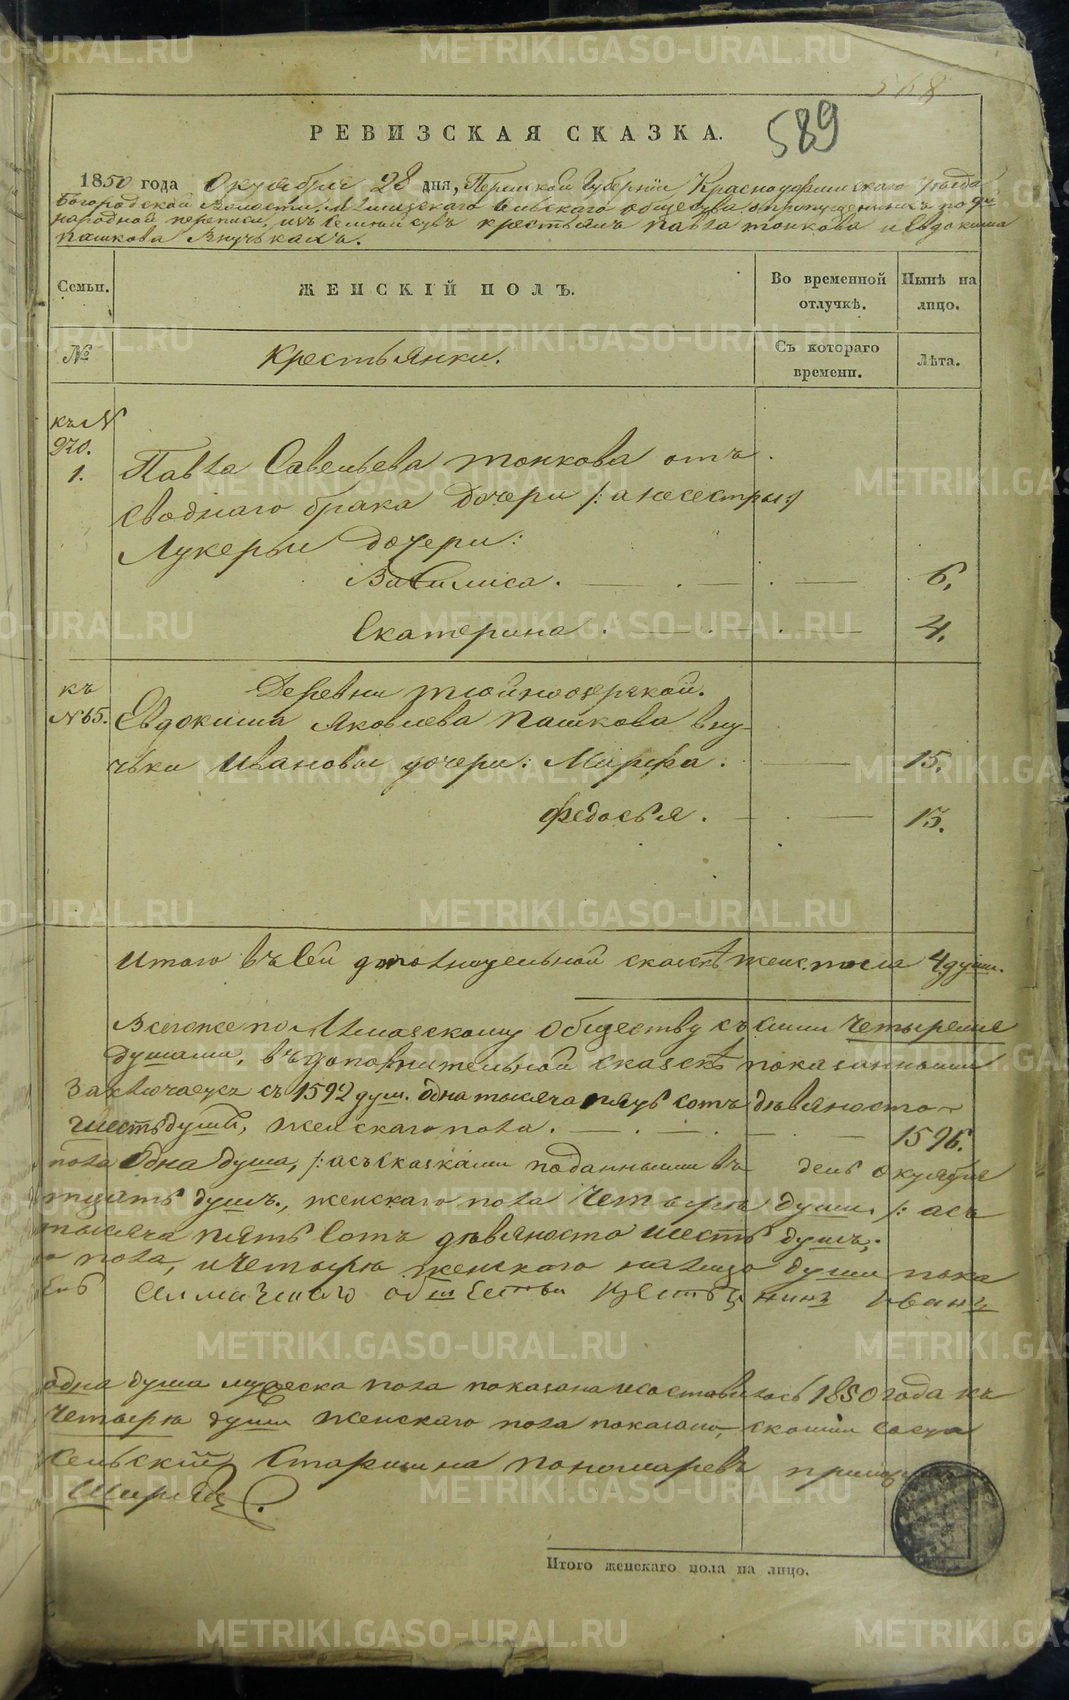 568
589
РЕВИЗСКАЯ СКАЗКА.
1850 года Октября 28 дня, Пермской Губерніи Красноуфимскаго Уѣзда
Богородской Волости, Сельскаго общества, о пропущенныхъ по
народной переписи, изъ семействъ крестьянъ Павла тонкова и Евдокима
пашкова Внучькахъ.
Семьи. ЖЕНСКІЙ ПОЛЪ. Во временной отлучкѣ. Нынѣ на лицо.
№ Крестьянки. Съ котораго времени. Лѣта.
къ N
970.
1. Павла Савельева тонкова отъ
сводного брака дочери /: а не сестры :/
Лукерьи дочери:
Василиса. 6.
Екатерина. 4.
къ Деревни
N 65. Евдокима Яковлева Пашкова вну-
чьки Ивановы дочери: Марфа. 15.
Федосья. 13.
Итого въ сей дополнительной сказкѣ женс. пола 4 души.
Всего же по обществу съ сими четыремя
душами, въ дополнительной сказкѣ показанными
Заключается съ 1592 душ. одна тысяча пять сотъ девяносто
шесть душъ, женскаго пола. 1596.
пола одна душа, /: а съ сказками поданными въ день октября
душъ, женскаго пола четыре души /: а съ
тысяча пять сотъ девяносто шесть душъ,
пола, и четыре женскаго на лицо души пока
общества крестьянинъ Иванъ
одна душа мужеска пола показана 1850 года къ
четыре души женскаго пола показано, с коими
сельскій Старшина Пономаревъ
Итого женскаго пола на лицо.
METRIKI.GASO-URAL.RU